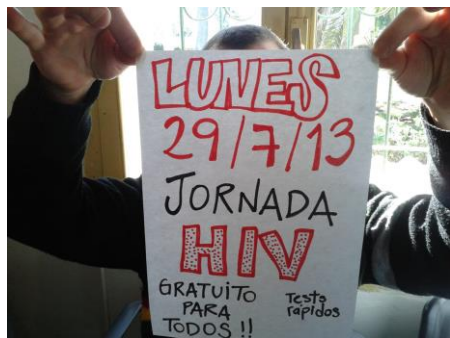 LUNES
29/7/13
JORNADA
HIV
GRATUITO
PARA
TODOS !!
Tests
rápidos